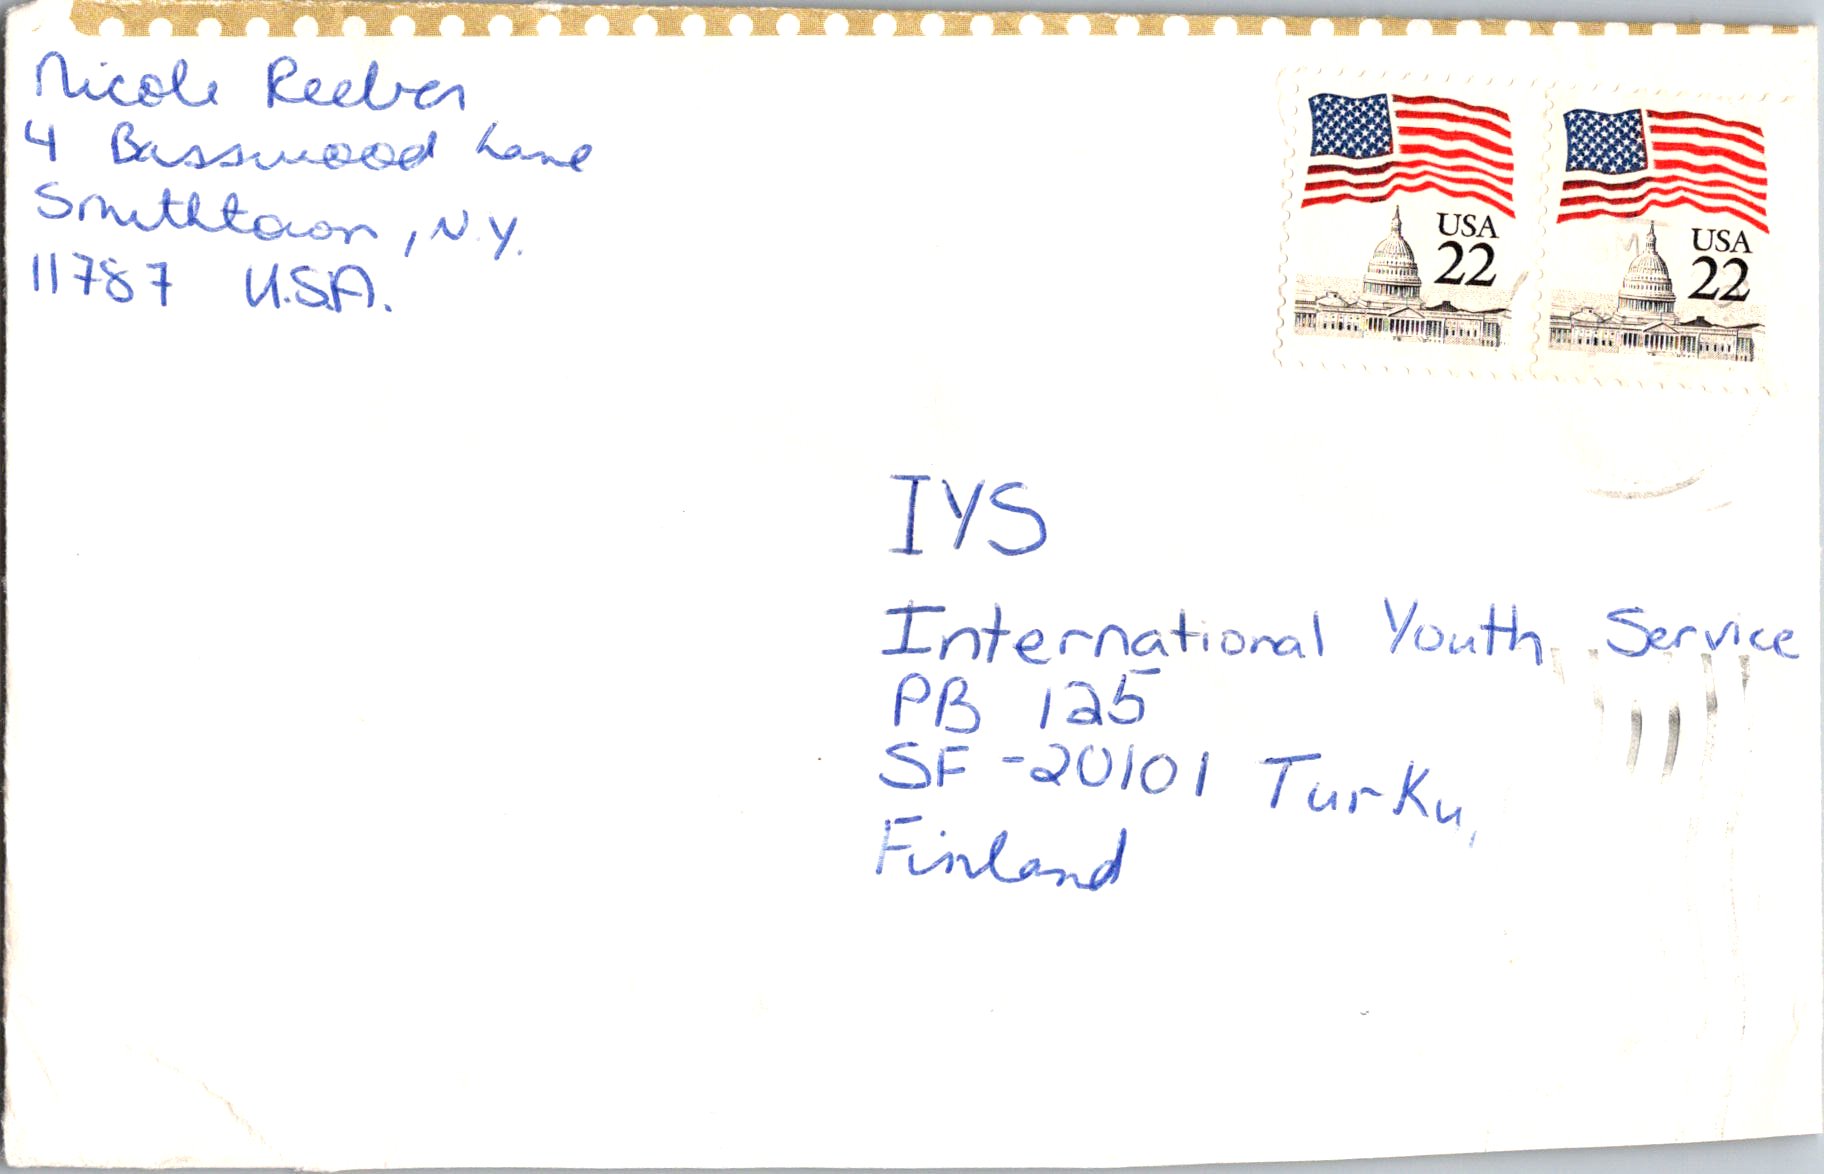 Nicole Reeber
4 Basswood Lane
Smithtown, N.Y.
11787 U.S.A.
USA
22
USA
22
IYS
International Youth Service
PB 125
SF-20101 Turku,
Finland